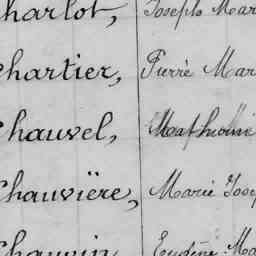 Charlot, Joseph Mar
Chartier, Pierre Mar
Chauvel, Mathurin
Chauvière, Marie Jose
Chauvin Eugène Ma